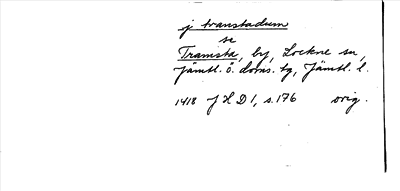 j transtadum
se
Tramsta, by, Lockne sn,
Jämtl. ö. doms. tg, Jämtl. l.
1418 J H D 1, s. 176 orig.